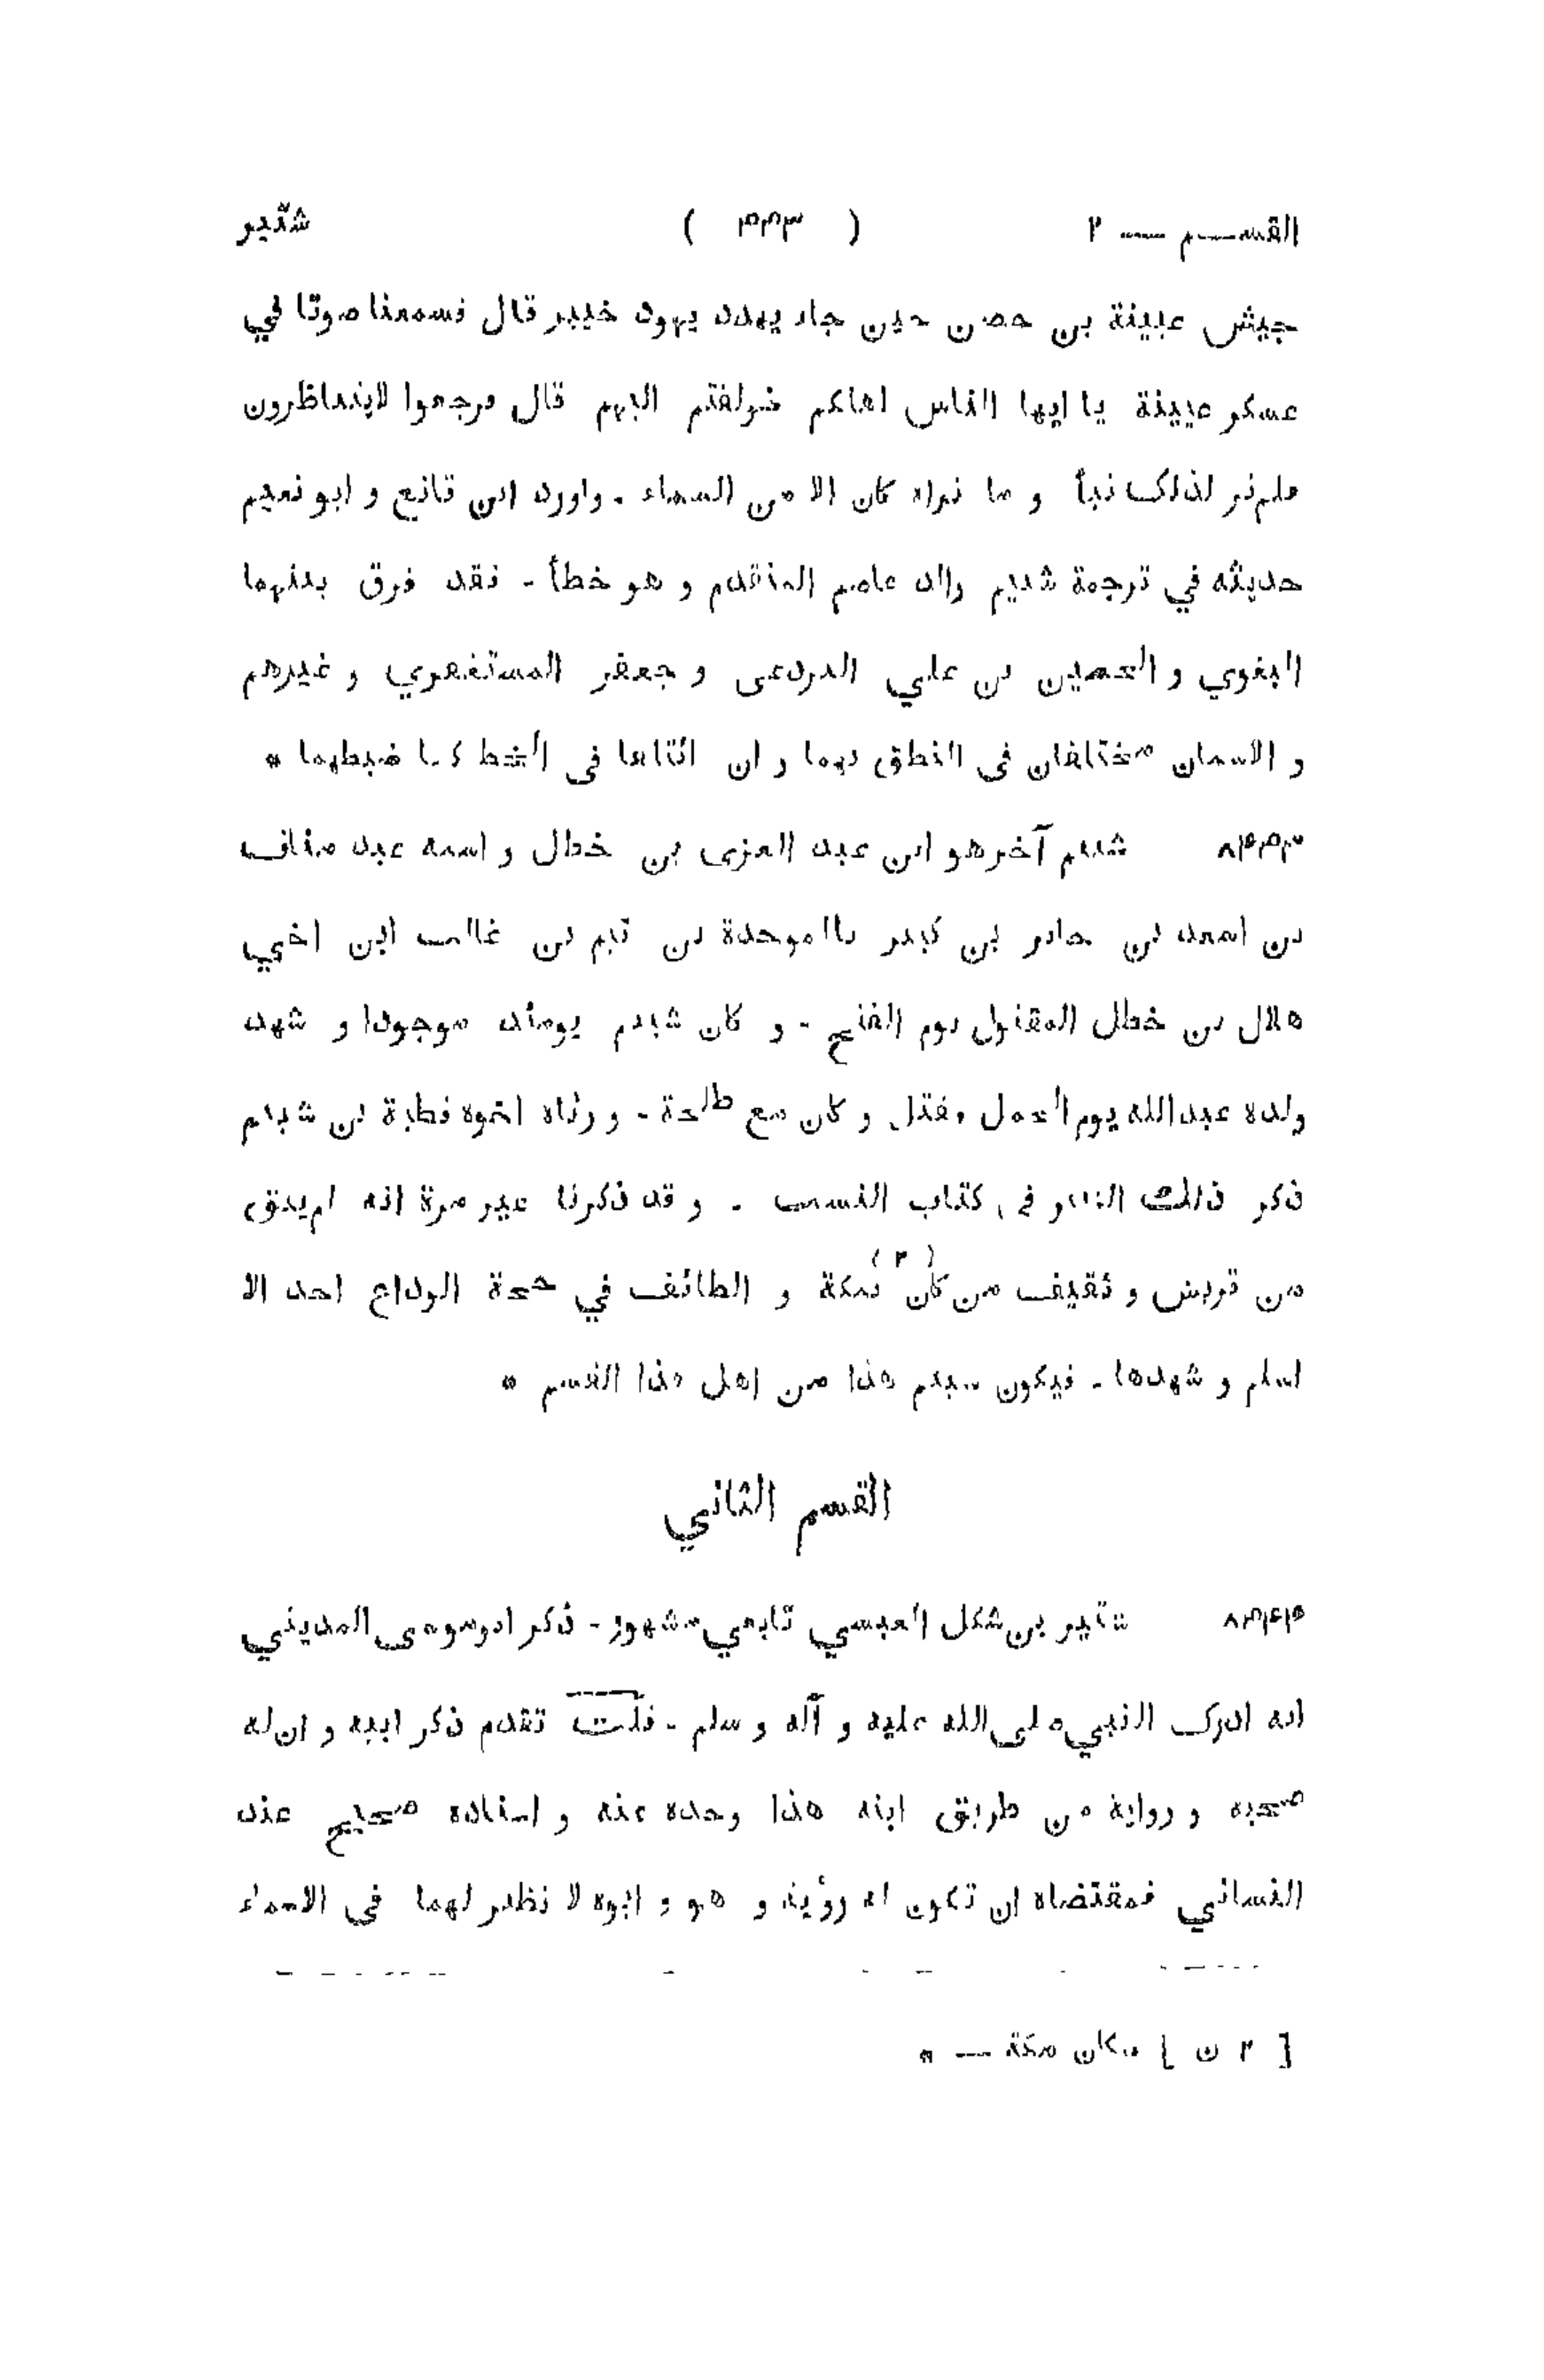 القســم — ٢ ( ٤٤٣ ) شتير
جيش عيينة بن حصن حين جاء يهدد يهود خيبر قال فسمعنا صوتا في
عسكر عيينة يا ايها الناس اهلكم خولفتم اليهم قال فرجعوا لايتناظرون
فلم نر لذلك نبأ و ما نراه كان الا من السماء - واورد ابن قانع و ابو نعيم
حديثه في ترجمة شييم والد عاصم المتقدم و هو خطأ - فقد فرق بينهما
البغوي و الحسين بن علي البردعى و جعفر المستغفري و غيرهم
و الاسمان مختلفان فى النطق بهما و ان ائتلفا فى الخط كما ضبطهما *
شييم آخر هو ابن عبد العزى بن خطل و اسمه عبد مناف
بن اسعد بن جابر بن كبير بالموحدة بن تيم بن غالب ابن اخي
هلال بن خطل المقتول يوم الفتح - و كان شييم يومئذ موجودا و شهد
ولده عبد الله يوم الجمل فقتل و كان مع طلحة - و رثاه اخوه قطبة بن شييم
ذكر ذلك الزبير في كتاب النسب - و قد ذكرنا غير مرة انه لم يبق
من قريش و ثقيف من كان (٢) بمكة و الطائف في حجة الوداع احد الا
اسلم و شهدها - فيكون شييم هذا من اهل هذا القسم *
القسم الثاني
شتير بن شكل العبسي تابعي مشهور - ذكر ابو موسى المديني
انه ادرك النبي صلى الله عليه و آله و سلم - قلت تقدم ذكر ابيه و ان له
صحبه و رواية من طريق ابنه هذا وحده عنه و اسناده صحيح عند
النسائي فمقتضاه ان تكون له رؤية و هو و ابوه لا نظير لهما فى الاسماء
[ ٢ ن ] مكان مكة — *